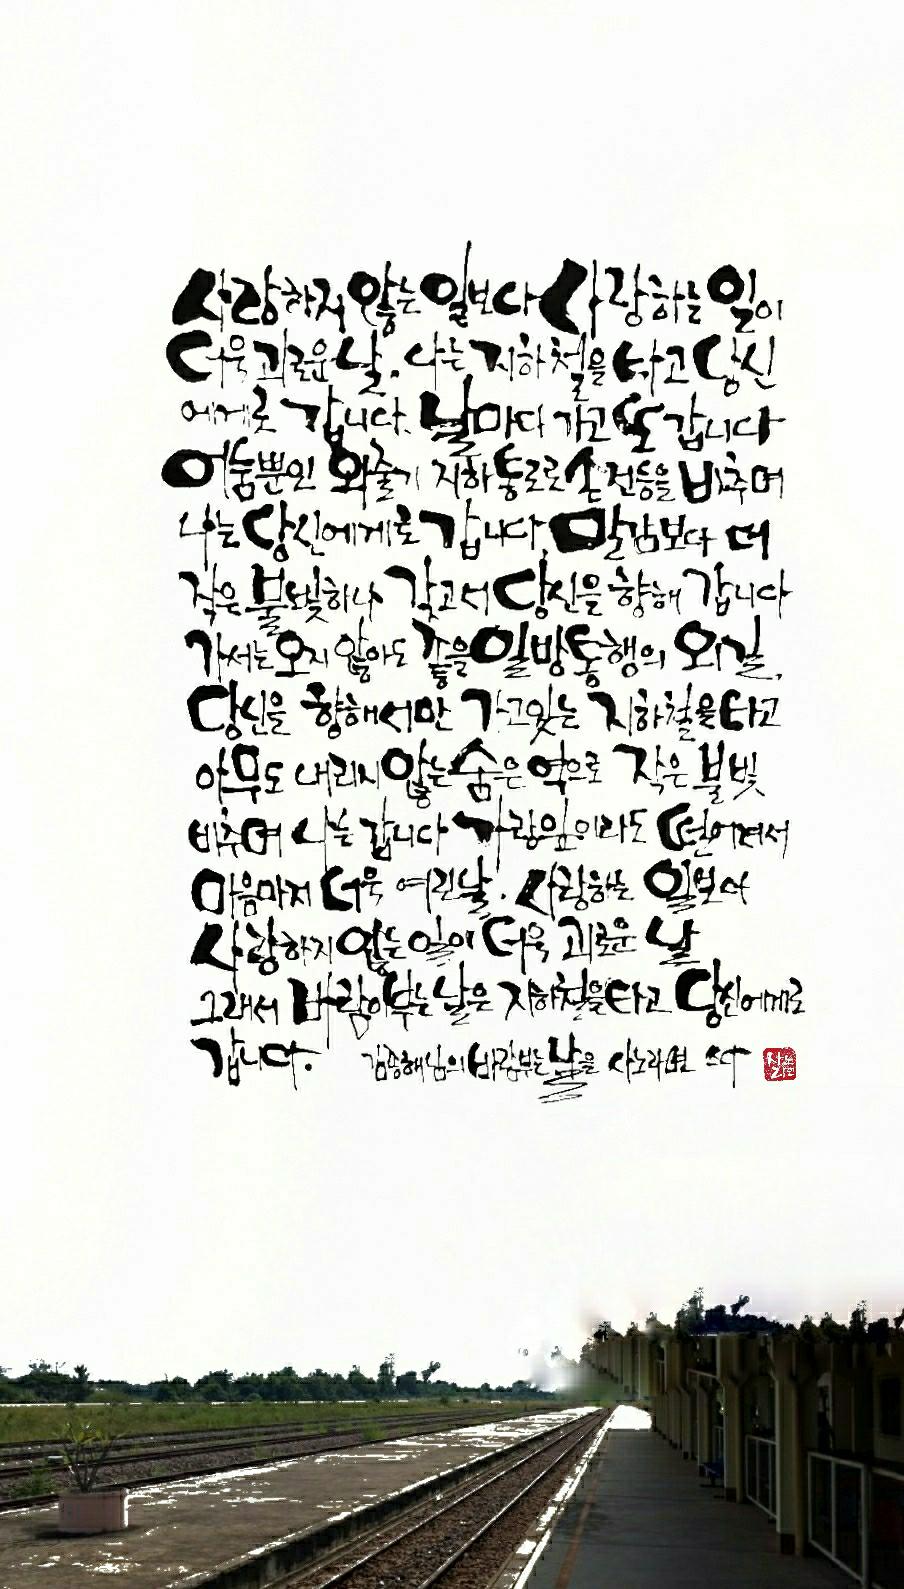 사랑하지 않는 일보다 사랑하는 일이
더욱 괴로운 날, 나는 지하철을 타고 당신
에게로 갑니다. 날마다 가고 또 갑니다
어둠뿐인 외줄기 지하통로로 손전등을 비추며
나는 당신에게로 갑니다, 말감보다 더
작은 불빛하나 갖고서 당신을 향해 갑니다
가서는 오지 않아도 좋을 일방통행의 외길,
당신을 향해서만 가고있는 지하철을 타고
아무도 내리지 않는 숨은 역으로 작은 불빛
비추며 나는 갑니다 가랑잎이라도 떨어져서
마음마저 더욱 여린 날, 사랑하는 일보다
사랑하지 않는 일이 더욱 괴로운 날
그래서 바람이 부는 날은 지하철을 타고 당신에게로
갑니다. 김종해님의 바람부는 날을 사노라면 쓰다